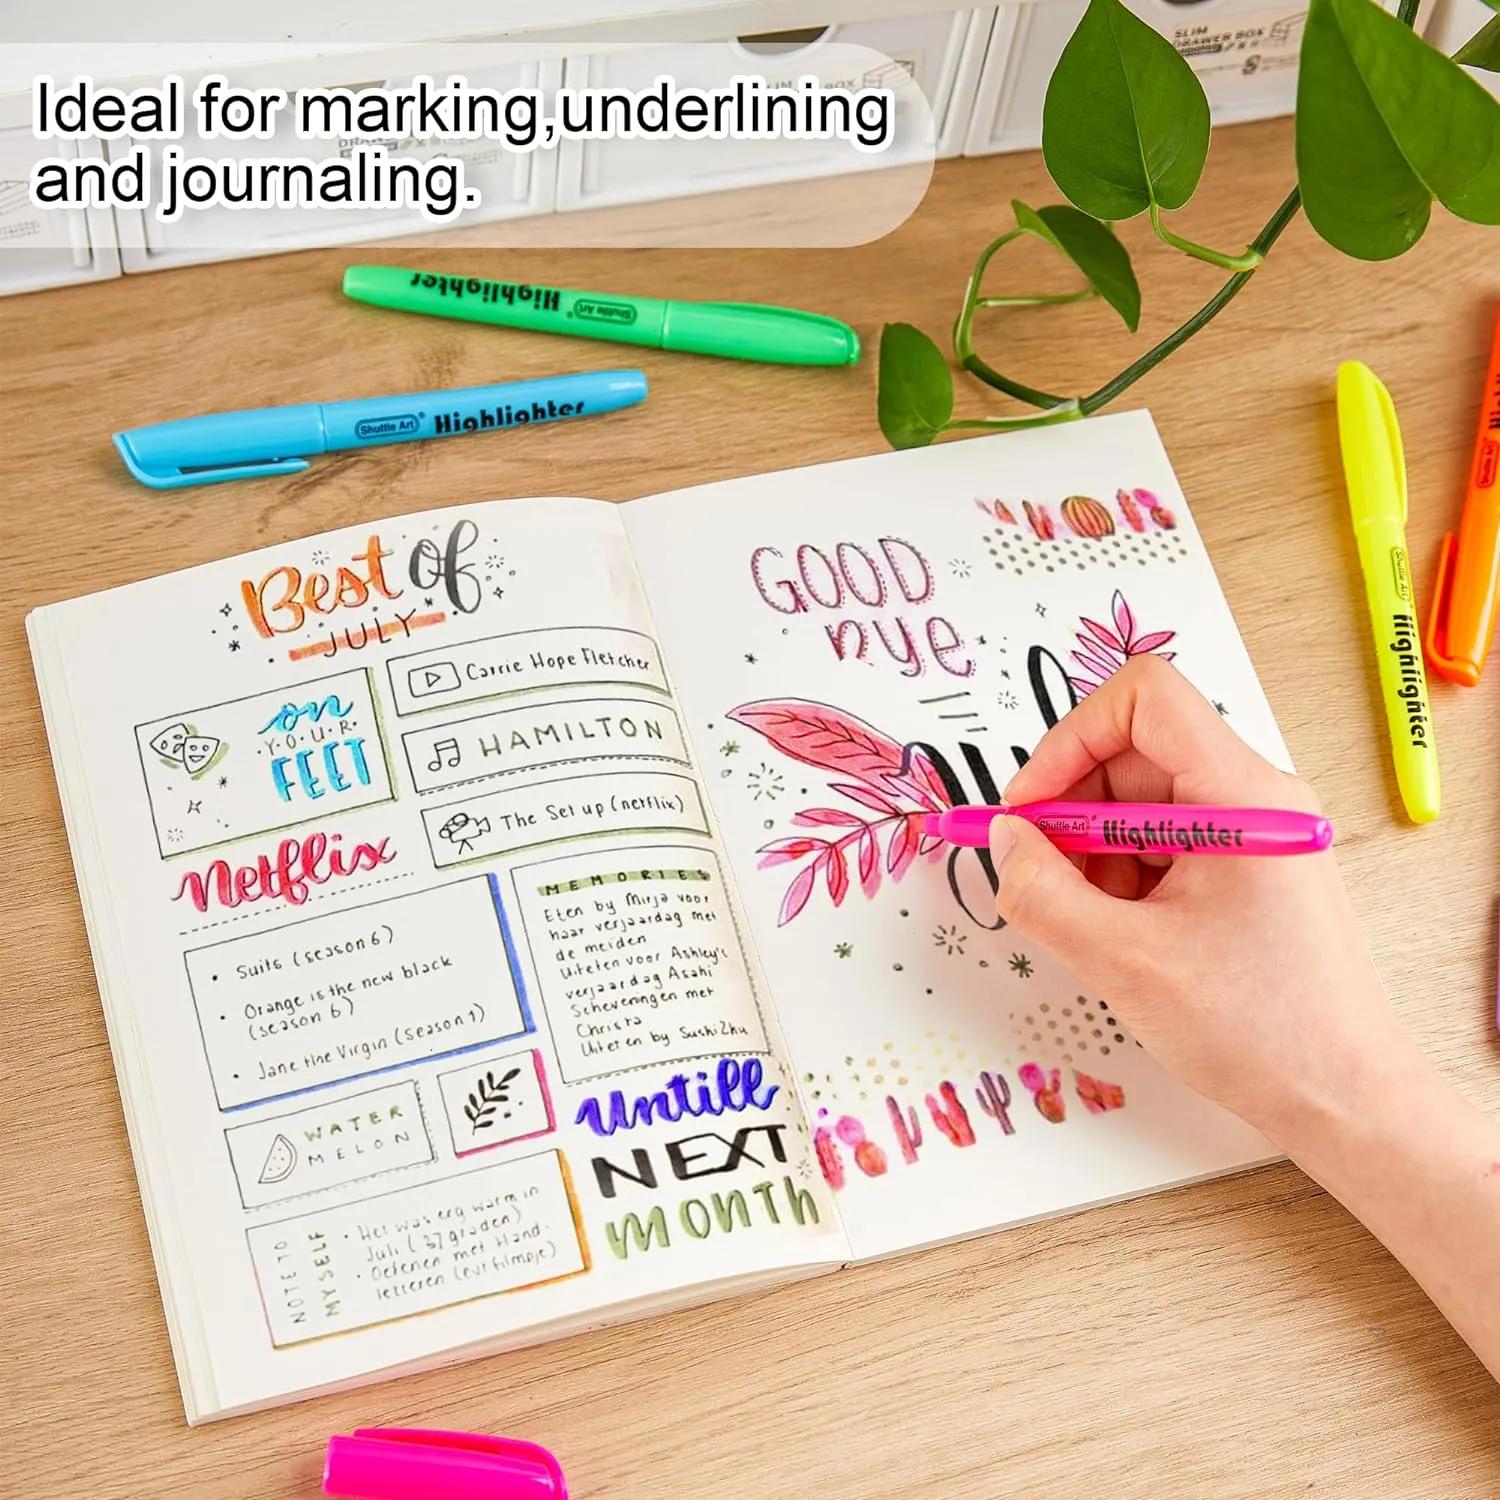 Ideal for marking,underlining
and journaling.
SLIM
DRAWER BOX
Shuttle Art
Highlighter
Shuttle Art® Highlighter
Shuttle Art
Highlighter
Shuttle Art
Best of
JULY
on
YOUR
FEET
Carrie Hope Fletcher
HAMILTON
The Set up (netflix)
Netflix
• Suits (season 6)
• Orange is the new black
(season 6)
• Jane the Virgin (season 1)
MEMORIES
Eten by Mirja voor
haar verjaardag met
de meiden
Uiteten voor Ashley's
verjaardag Asahi
Scheveningen met
Christa
Uiteten by SushiZhu
WATER
MELON
NOTE TO
MYSELF
• Het was erg warm in
Juli (37 graden)
• Oefenen met Hand-
letteren (evt filmpje)
Untill
NEXT
MONTH
GOOD
nye
Shuttle Art Highlighter